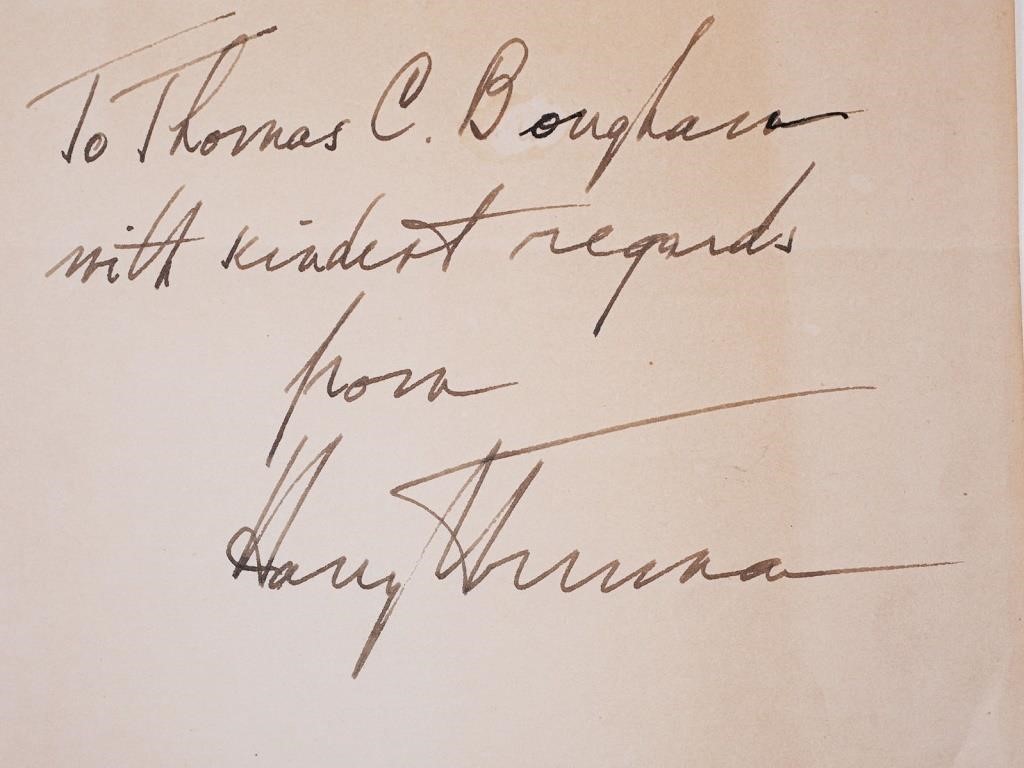 To Thomas C. Bougham
with kindest regards
from
Harry Truman